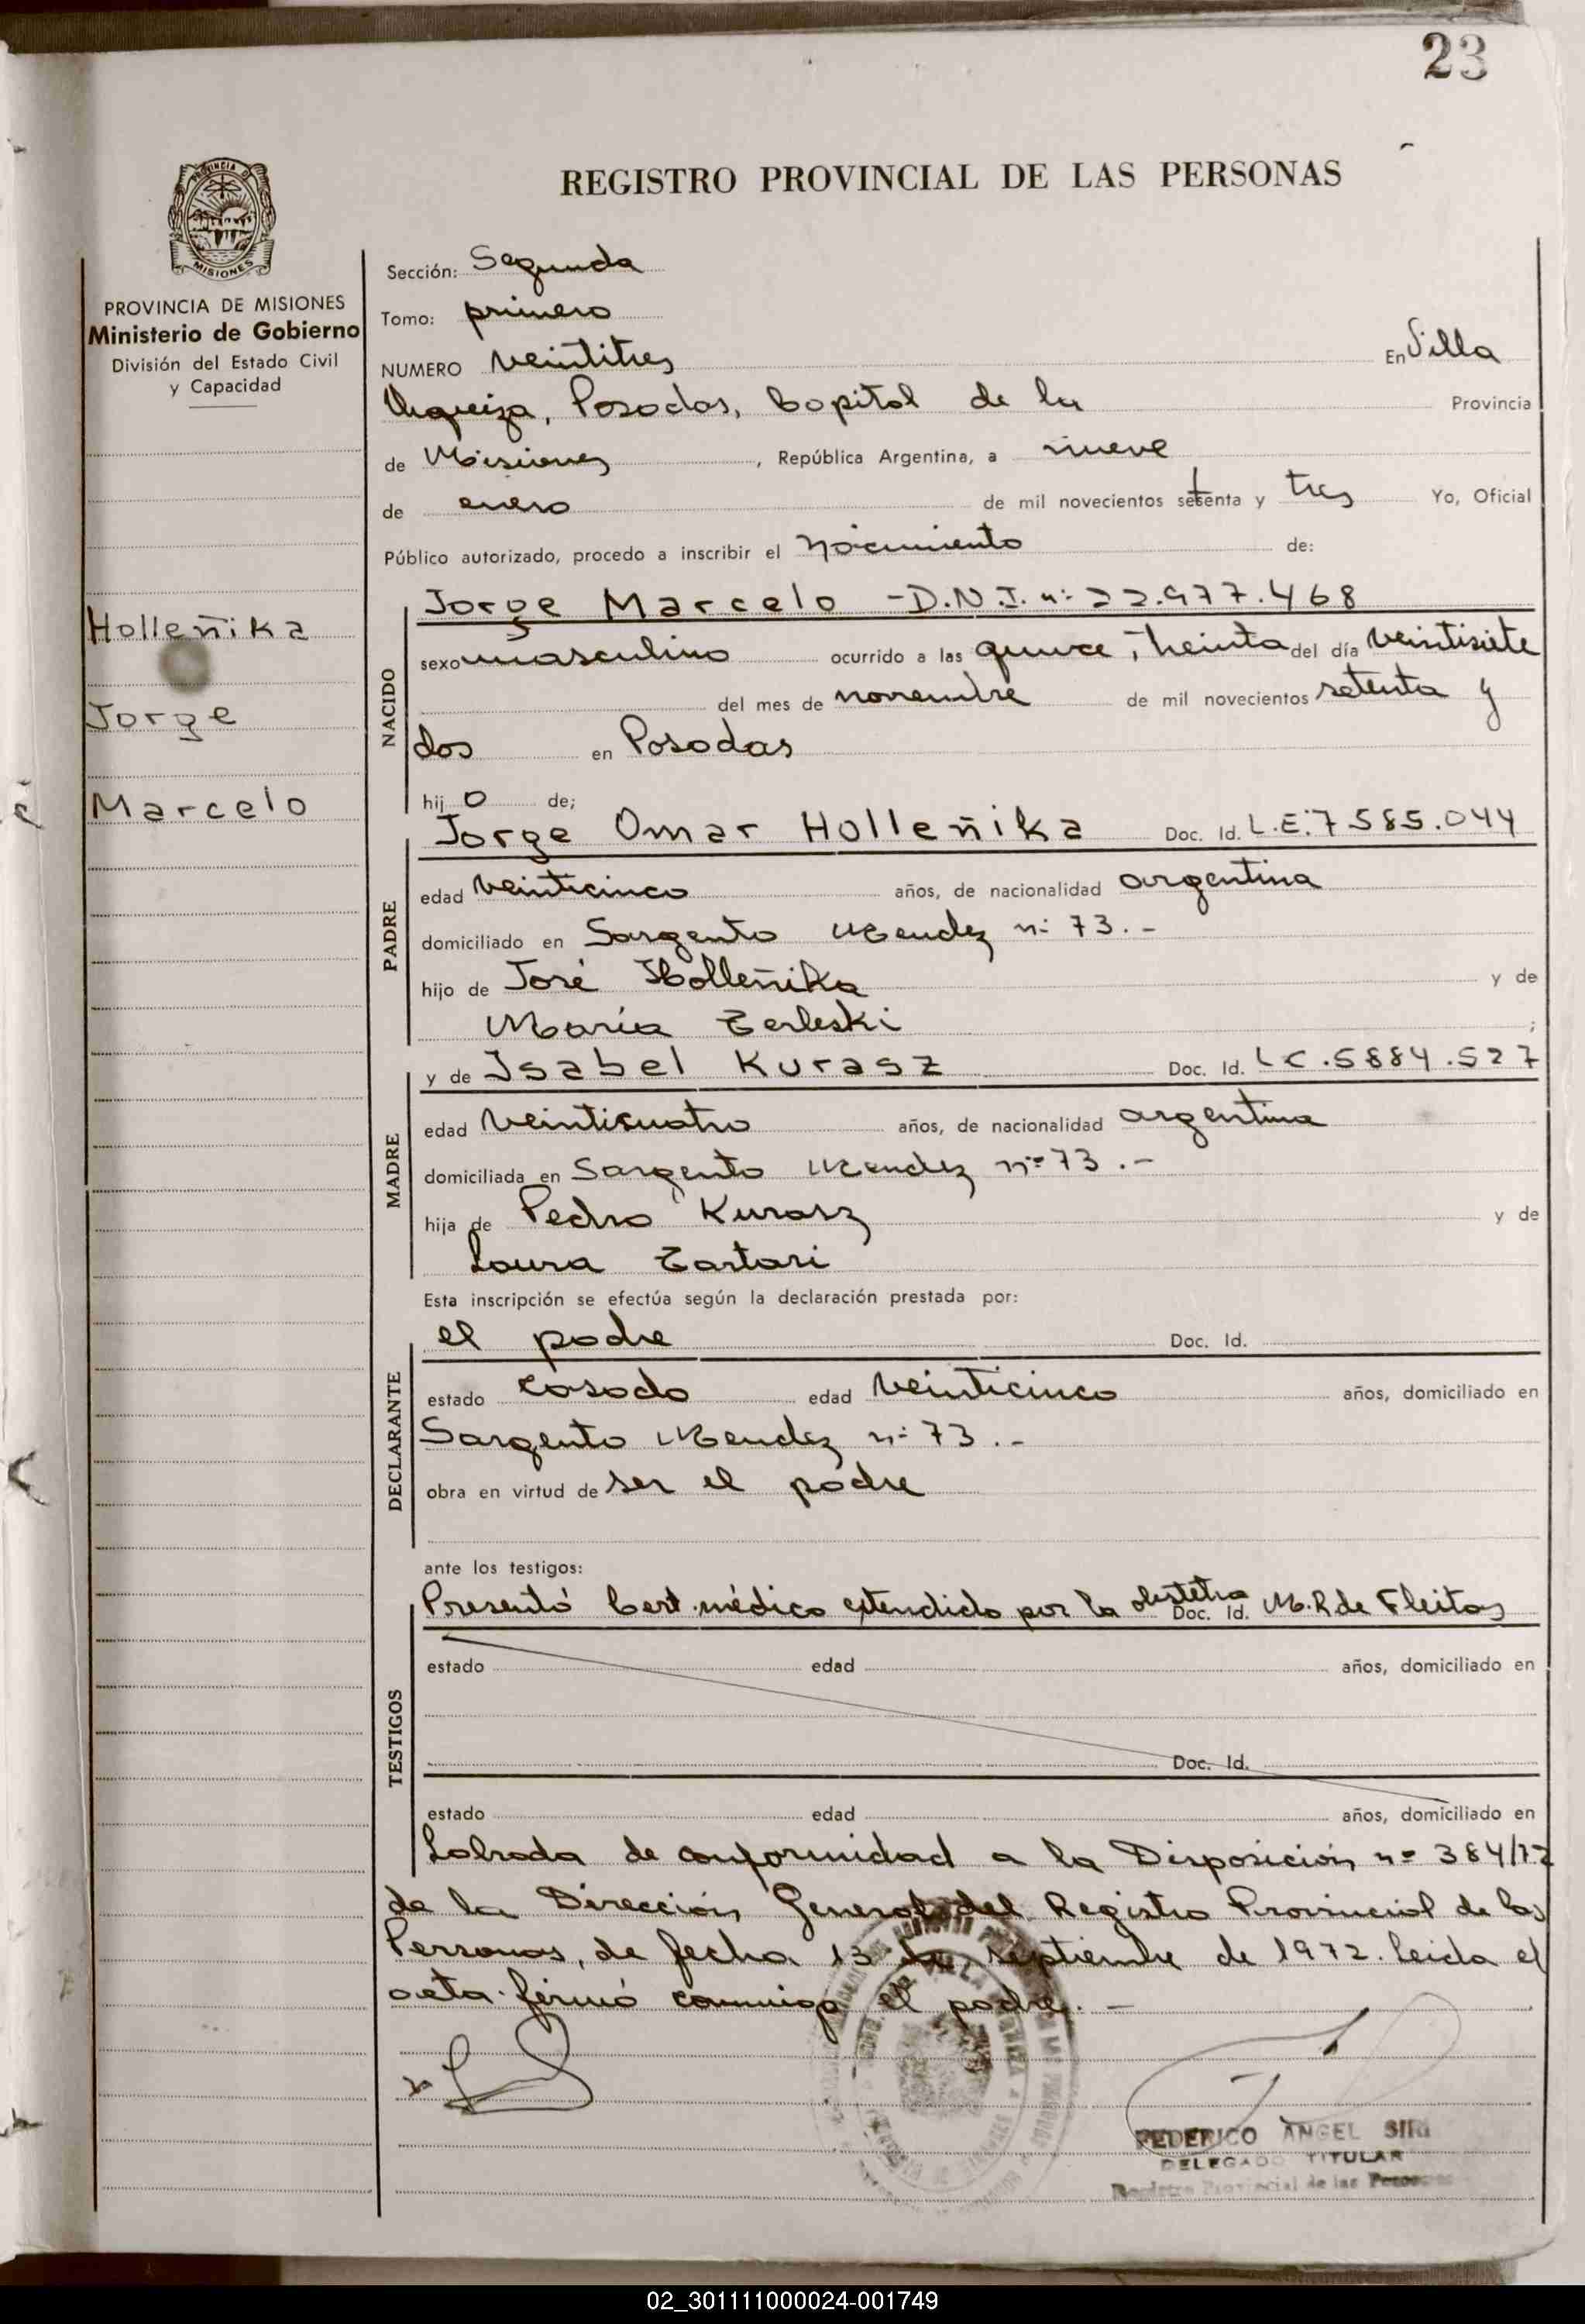 23
REGISTRO PROVINCIAL DE LAS PERSONAS
PROVINCIA DE MISIONES
Ministerio de Gobierno
División del Estado Civil
y Capacidad
Holleñika
Jorge
Marcelo
Sección: Segunda
Tomo: primero
NUMERO veintitres En Villa
Urquiza, Posadas, Capital de la Provincia
de Misiones, República Argentina, a nueve
de enero de mil novecientos setenta y tres Yo, Oficial
Público autorizado, procedo a inscribir el Nacimiento de:
NACIDO
Jorge Marcelo - D.N.I. nº 22.977.468
sexo masculino ocurrido a las quince, treinta del día veintisiete
del mes de noviembre de mil novecientos setenta y
dos en Posadas
hijo de;
PADRE
Jorge Omar Holleñika Doc. Id. L.E. 7585.044
edad veinticinco años, de nacionalidad argentina
domiciliado en Sargento Mendez nº 73.-
hijo de José Holleñika y de
María Terleski;
MADRE
y de Isabel Kurasz Doc. Id. L.C. 5884.527
edad veinticuatro años, de nacionalidad argentina
domiciliada en Sargento Mendez nº 73.-
hija de Pedro Kurasz y de
Laura Tartari
Esta inscripción se efectúa según la declaración prestada por:
DECLARANTE
el padre Doc. Id.
estado casado edad veinticinco años, domiciliado en
Sargento Mendez nº 73.-
obra en virtud de ser el padre
ante los testigos:
TESTIGOS
Presentó Cert. médico extendido por la obstetra Doc. Id. M.R de Fleitas
estado edad años, domiciliado en
Doc. Id.
estado edad años, domiciliado en
Labrada de conformidad a la Disposición nº 384/72
de la Dirección General del Registro Provincial de las
Personas, de fecha 13 de septiembre de 1972. leida el
acta firmó conmigo el padre.-
FEDERICO ANGEL SIRI
DELEGADO TITULAR
Registro Provincial de las Personas
02_301111000024-001749